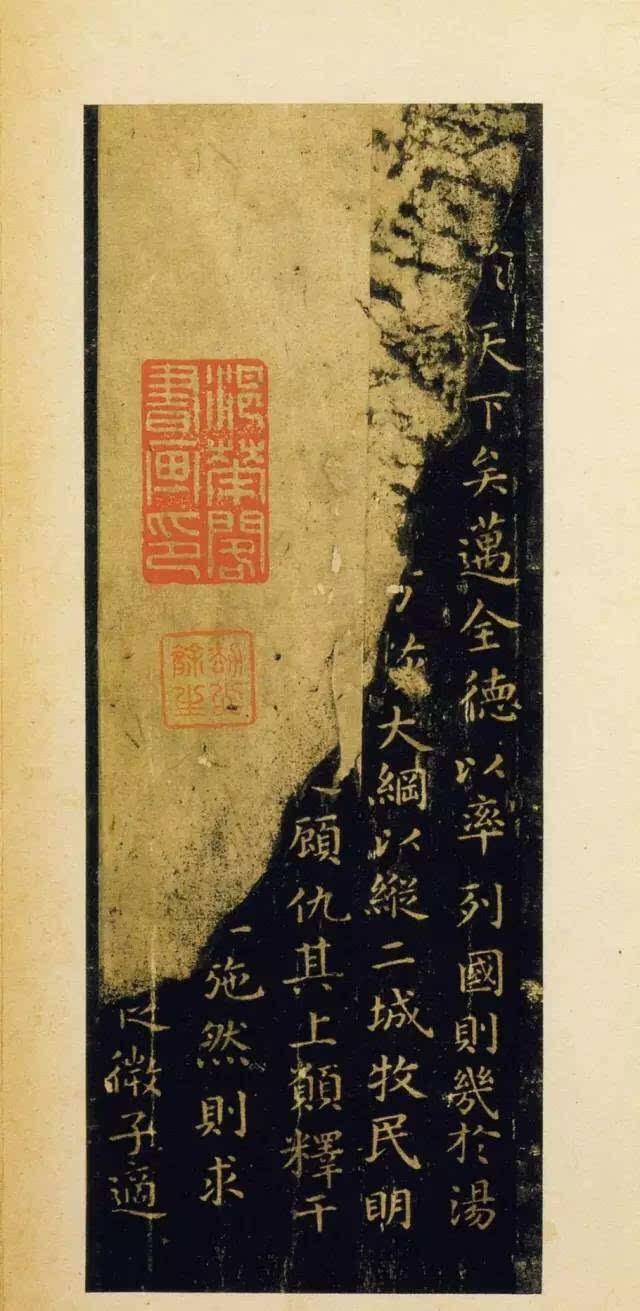 天下矣邁全德以率列國則幾於湯
大綱以縱二城牧民明
顧仇其上願釋干
施然則求
微子適
閣書畫印